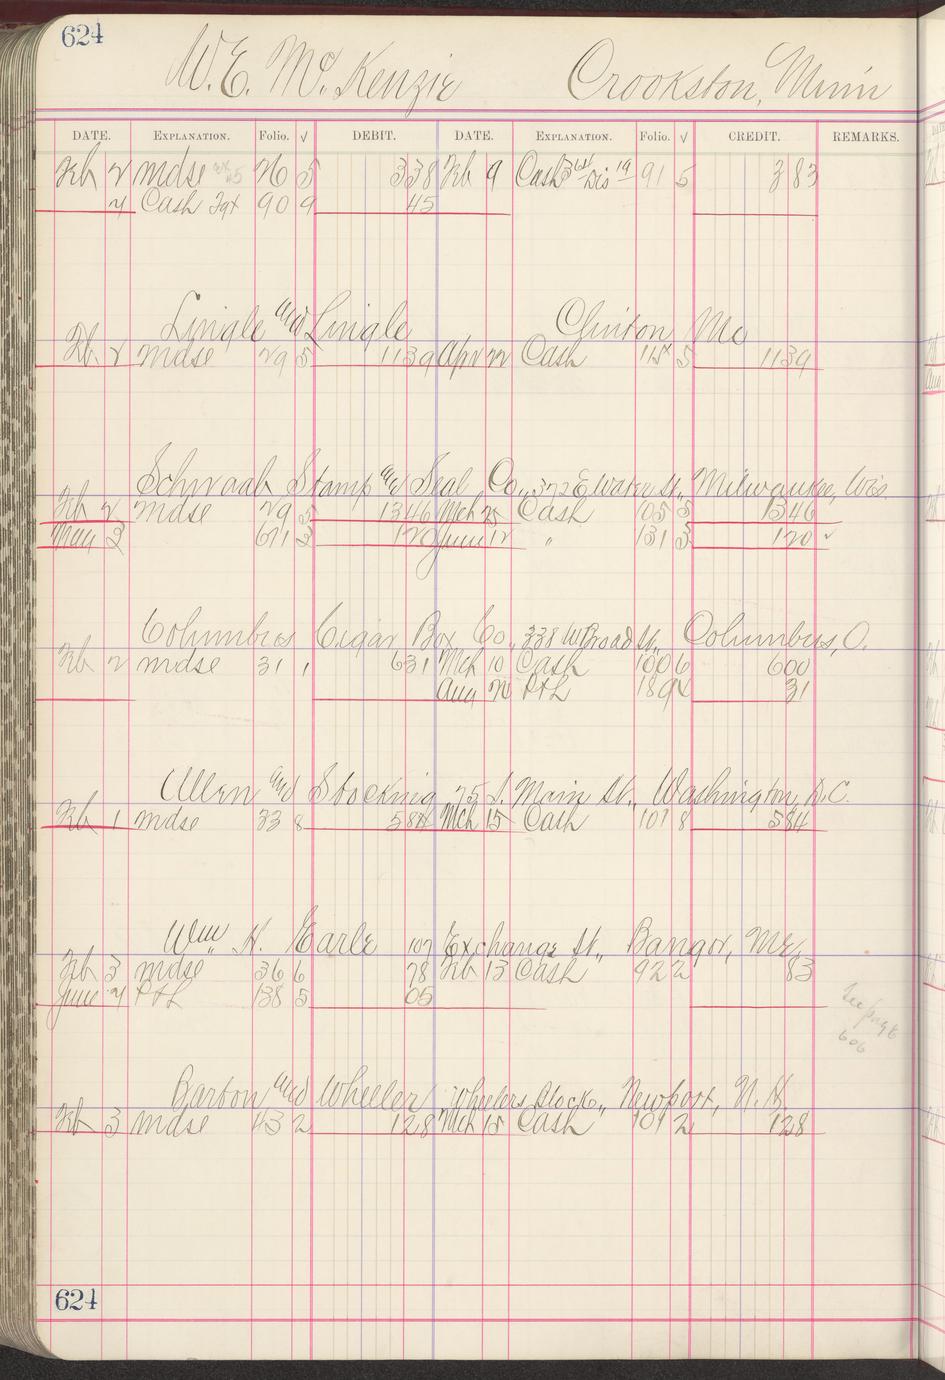 624
W. E. McKenzie Crookston, Minn
DATE. EXPLANATION. Folio. √ DEBIT. DATE. EXPLANATION. Folio. √ CREDIT. REMARKS.
Feb 2 mdse 26 5 338 Feb 9 Cash Dis 91 5 383
Cash 90 9 45
Lingle and Lingle Clinton Mo
Feb 2 mdse 29 5 1139 Apr 22 Cash 5 1139
Schwaab Stamp and Seal Co., 372 E Water St., Milwaukee, Wis.
Feb 2 mdse 29 5 1346 Mch 25 Cash 105 5 1346
May 3 671 3 120 June 12 " 131 5 120 ✓
Columbus Cigar Box Co., 338 W Broad St., Columbus, O.
Feb 2 mdse 31 1 631 Mch 10 Cash 100 6 600
Aug P&L 189 31
Allen and Stocking 75 S. Main St., Washington, D.C.
Feb 1 mdse 33 8 584 Mch 15 Cash 101 8 584
Wm H. Earle 107 Exchange St., Bangor, Me.
Feb 3 mdse 36 6 78 Feb 13 Cash 92 2 83
June P&L 138 5 05
See page
606
Barton and Wheeler Wheelers Block, Newport, N.H.
Feb 3 mdse 43 2 128 Mch 15 Cash 101 2 128
624